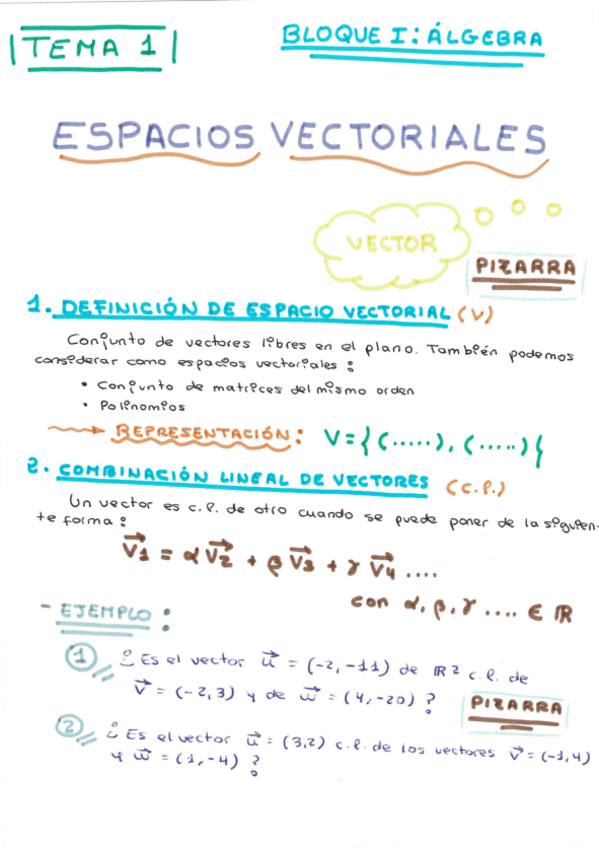 TEMA 1
BLOQUE I: ÁLGEBRA
ESPACIOS VECTORIALES
VECTOR
PIZARRA
1. DEFINICIÓN DE ESPACIO VECTORIAL (V)
Conjunto de vectores libres en el plano. También podemos
considerar como espacios vectoriales:
• Conjunto de matrices del mismo orden
• Polinomios
→ REPRESENTACIÓN: V={(.....), (.....)}
2. COMBINACIÓN LINEAL DE VECTORES (c.l.)
Un vector es c.l. de otro cuando se puede poner de la siguien-
te forma:
v⃗1 = αv⃗2 + βv⃗3 + γv⃗4 ....
con α, β, γ .... ∈ ℝ
- EJEMPLO:
① ¿Es el vector u⃗ = (-2, -11) de ℝ² c.l. de
v⃗ = (-2,3) y de w⃗ = (4,-20)?
PIZARRA
② ¿Es el vector u⃗ = (3,2) c.l. de los vectores v⃗ = (-1,4)
y w⃗ = (1,-4)?